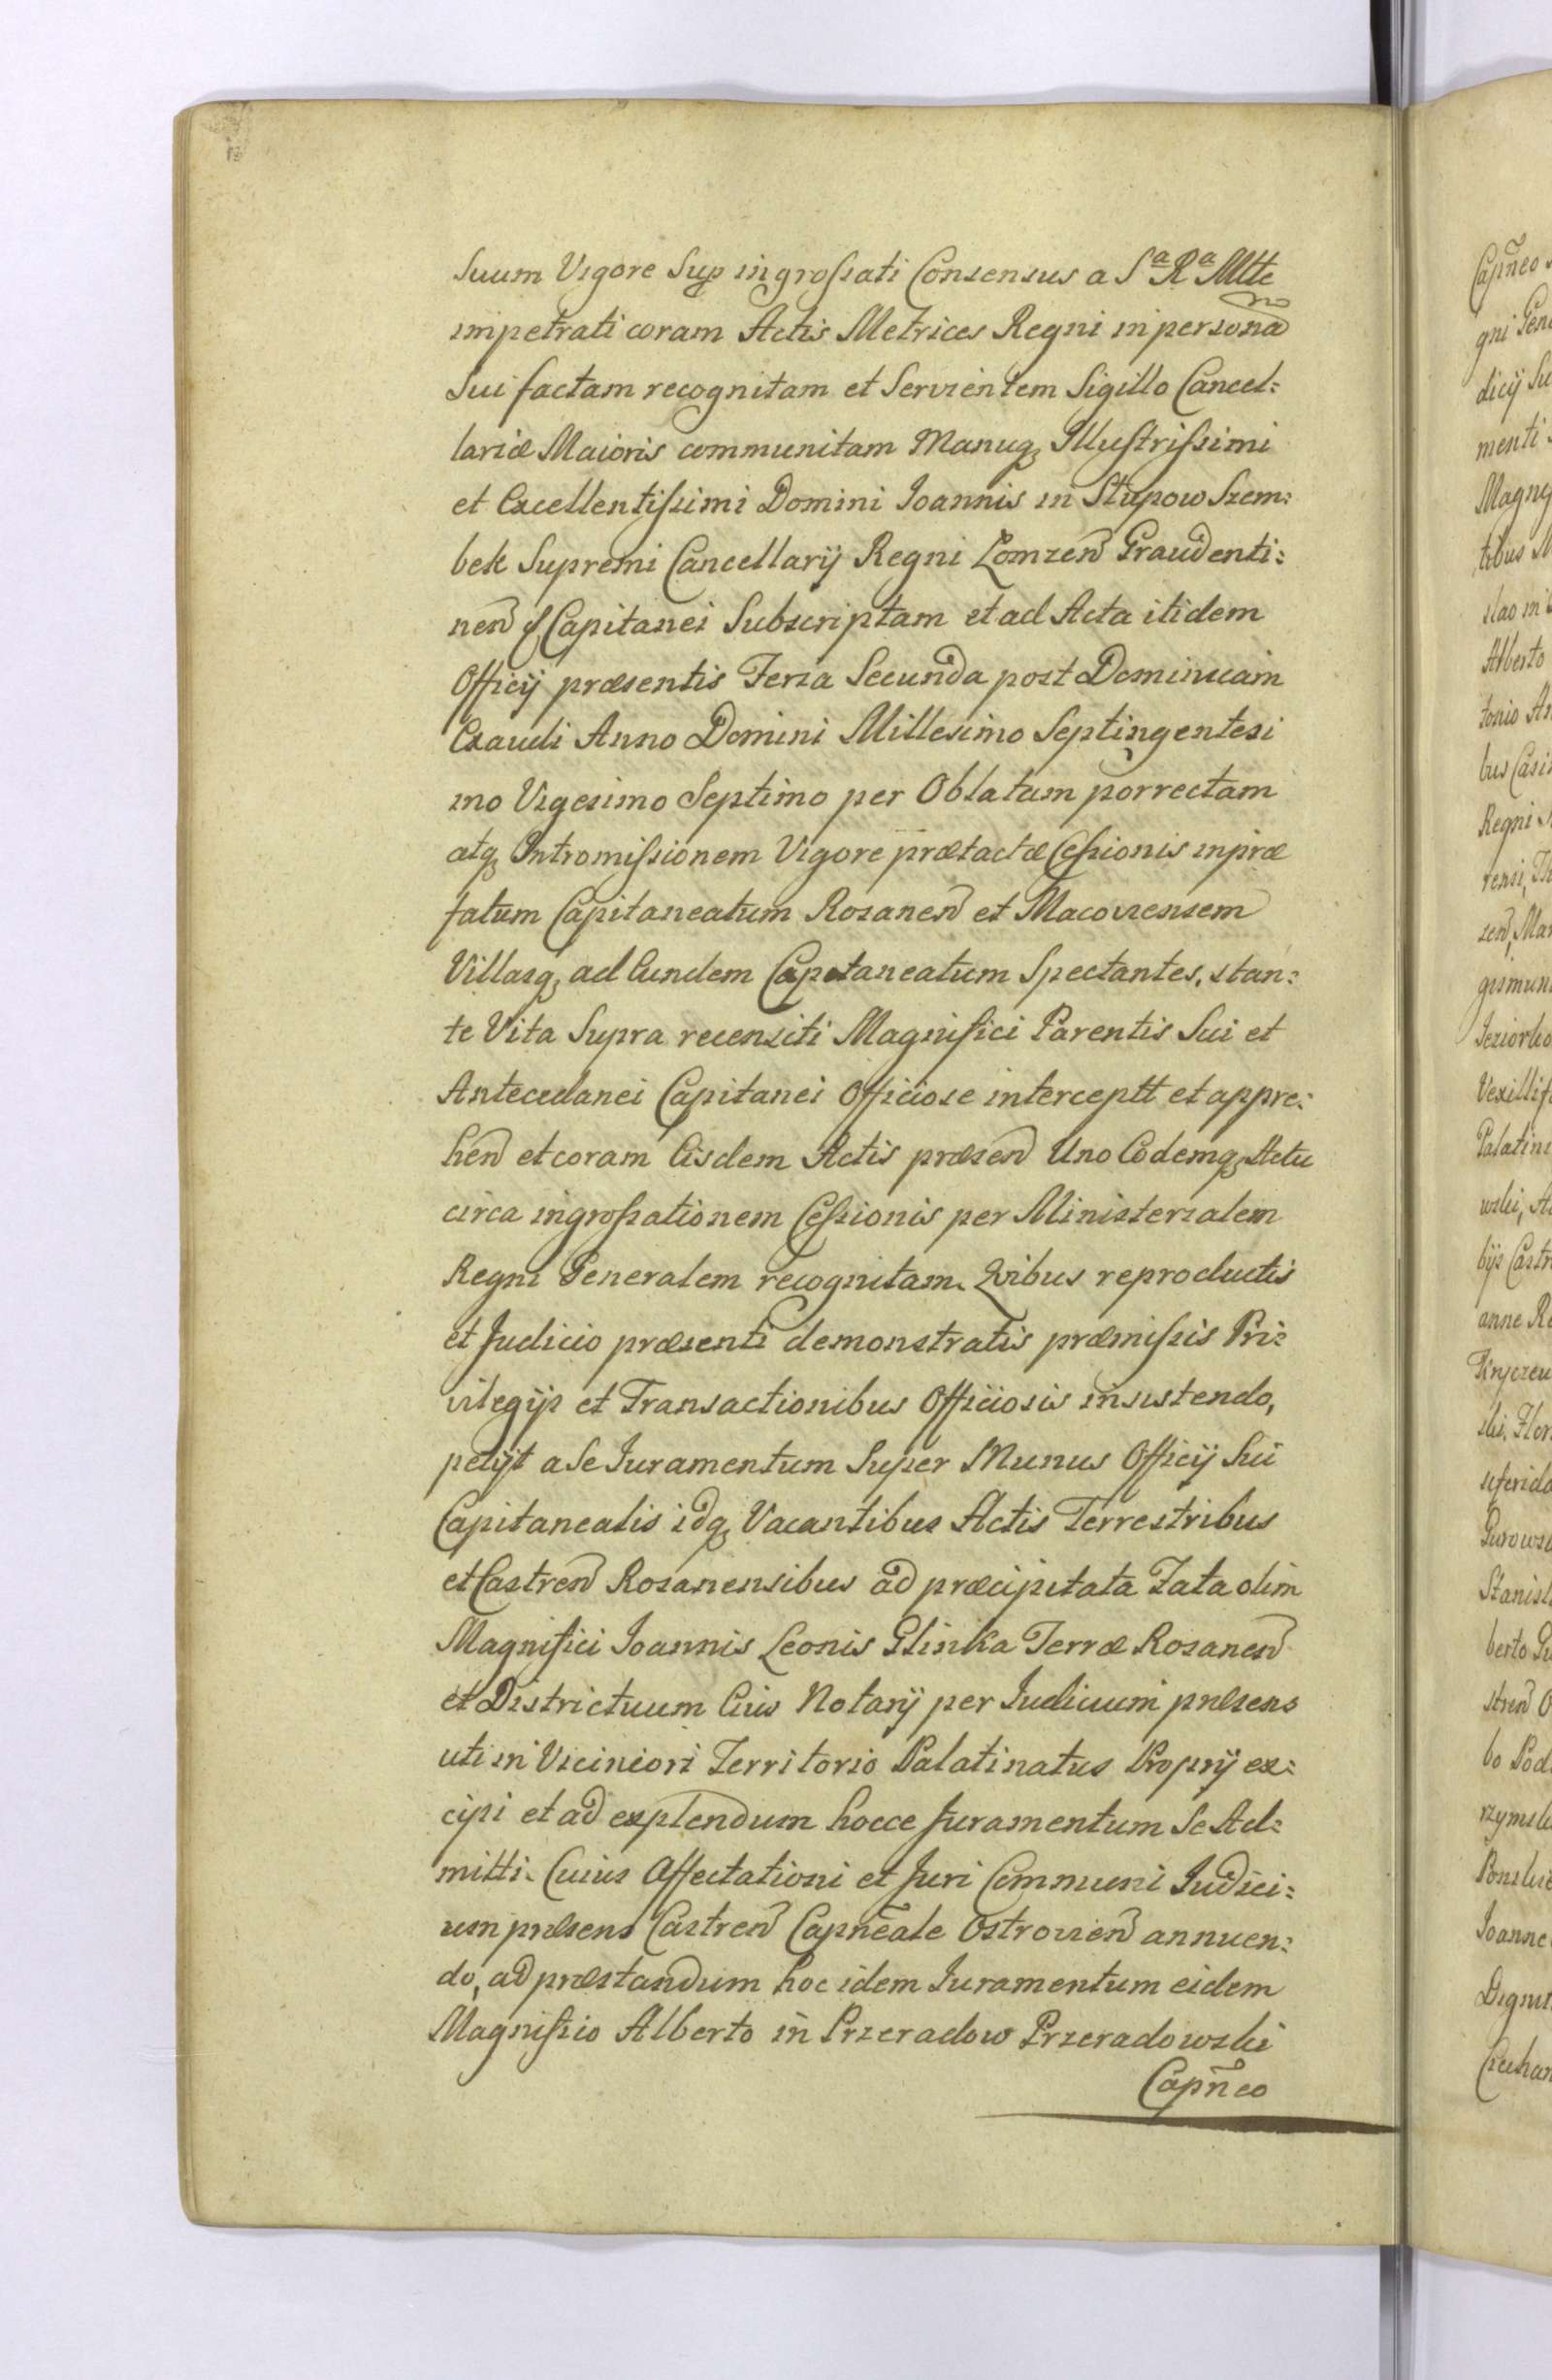 Suum Vigore Sup ingrossati Consensus a Sa Ra Mtte
impetrati coram Actis Metrices Regni in persona
Sui factam recognitam et Servientem Sigillo Cancel:
lariæ Maioris communitam Manuq; Illustrissimi
et Excellentissimi Domini Ioannis in Słupow Szem:
bek Supremi Cancellarij Regni Łomzen Graudenti:
nen Capitanei Subscriptam et ad Acta itidem
Officij præsentis Feria Secunda post Dominicam
Exaudi Anno Domini Millesimo Septingentesi
mo Vigesimo Septimo per Oblatam porrectam
atq; Intromissionem Vigore prætactæ Cessionis in præ
fatum Capitaneatum Rosanen et Macoviensem
Villasq; ad Eundem Capitaneatum Spectantes, stan:
te Vita Supra recensiti Magnifici Parentis Sui et
Antecedanei Capitanei Officiose interceptt et appre:
hen et coram Eisdem Actis præsen Uno Eodemq; Actu
circa ingrossationem Cessionis per Ministerialem
Regni Generalem recognitam. Qvibus reproductis
et Judicio præsenti demonstratis præmissis Pri:
vilegijs et Transactionibus Officiosis insistendo,
petijt a Se Iuramentum Super Munus Officij Sui
Capitanealis idq; Vacantibus Actis Terrestribus
et Castren Rosanensibus ad præcipitata Fata olim
Magnifici Ioannis Leonis Glinka Terræ Rosanen
et Districtuum Eius Notarij per Iudicium præsens
uti in Viciniori Territorio Palatinatus Proprij ex:
cipi et ad explendum hocce Juramentum Se Ad:
mitti. Cuius Affectationi et Juri Communi Iudici:
um præsens Castren Capneale Ostrovien annuen:
do, ad præstandum hoc idem Iuramentum eidem
Magnifico Alberto in Przeradow Przeradowski
Capneo
Capneo
gni Gen
dicij Su
menti
Magny
tibus M
slao in
Alberto
tonio An
bus Casi
Regni
rensi, Th
zen, Mar
gismun
Jeziorko
Vexillif
Palatin
wski, St
bijs Castr
anne Re
Knyszew
ski, Flor
Stanisl
berto Gu
stren O
bo Pod
Ioanne
Dignit